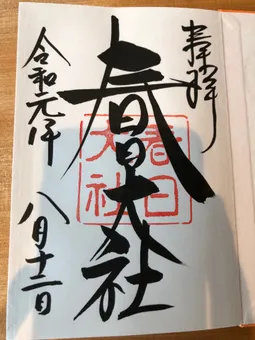 奉拝
春日大社
春日大社
令和元年 八月十二日